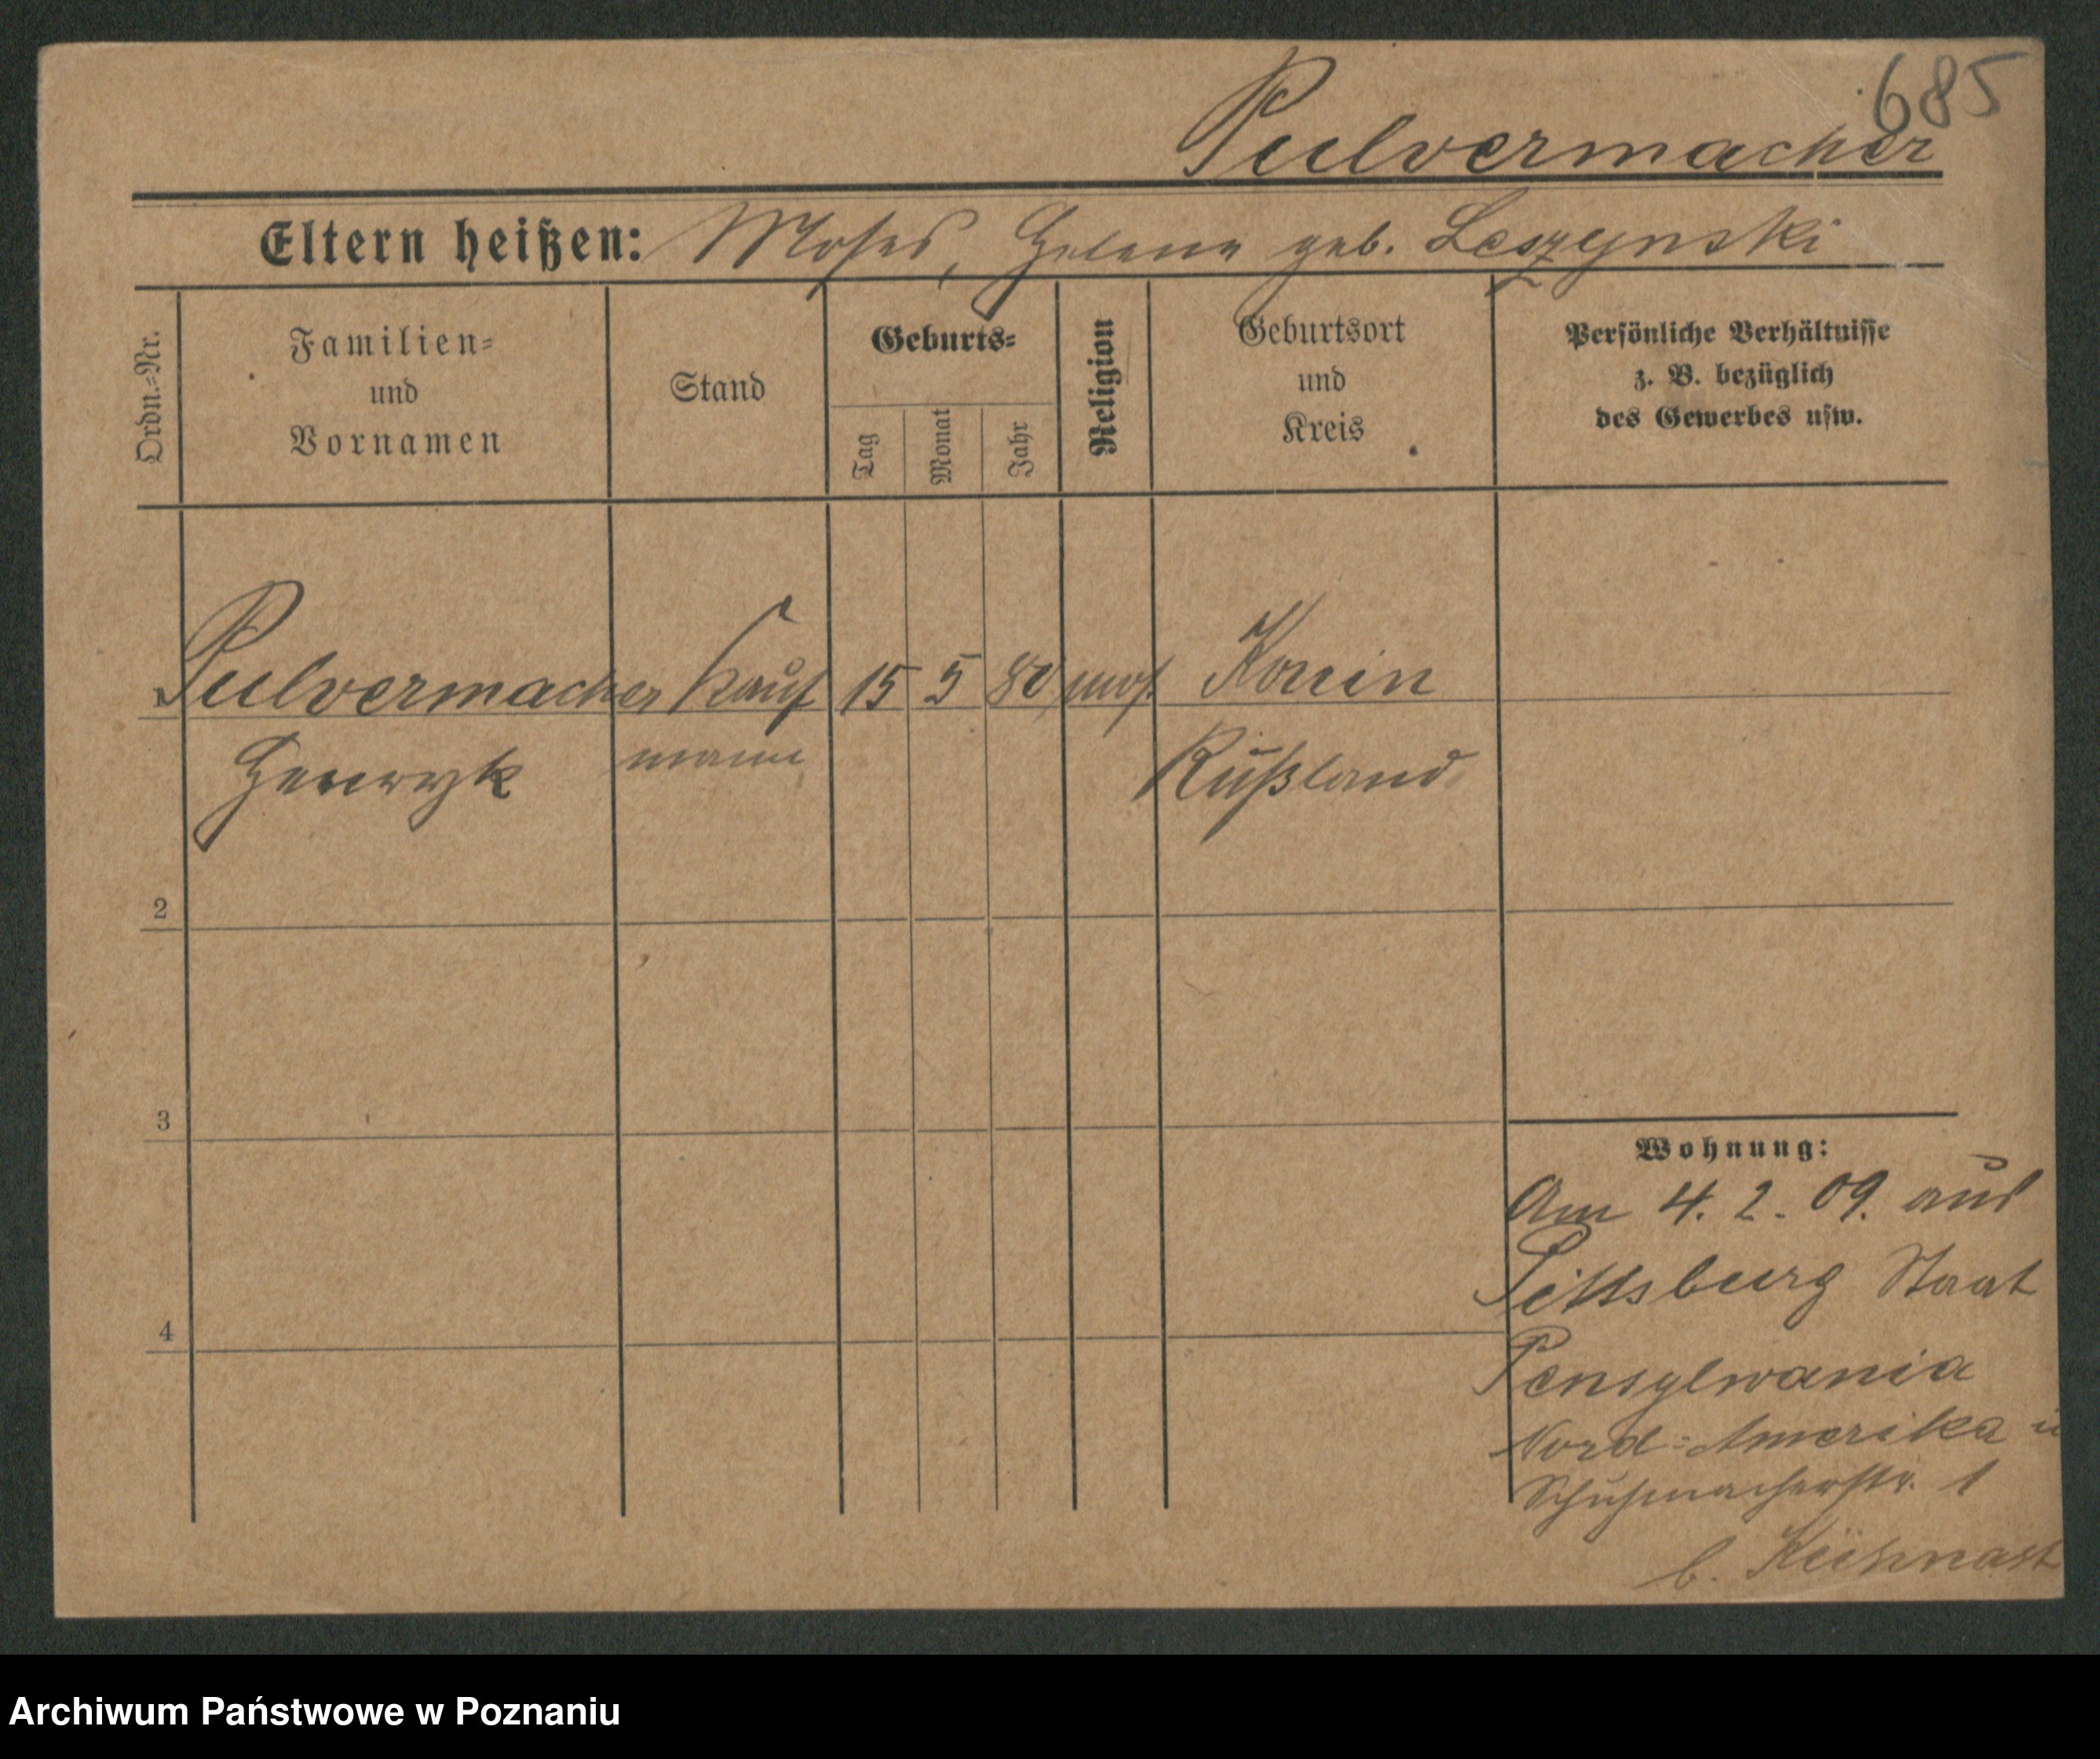 685
Pulvermacher
Eltern heißen: Moses, Helene geb. Leszynski
Ordn.=Nr.
Familien=
und
Vornamen
Stand
Geburts=
Tag
Monat
Jahr
Religion
Geburtsort
und
Kreis
Persönliche Verhältnisse
z. B. bezüglich
des Gewerbes usw.
Pulvermacher Kauf 15 5 80 mos. Konin
Henryk mann Rußland
2
3
4
Wohnung:
Am 4. 2. 09. aus
Pittsburg Staat
Pensylwania
Nord=Amerika
Schuhmacherstr. 1
b. Kühnast
Archiwum Państwowe w Poznaniu